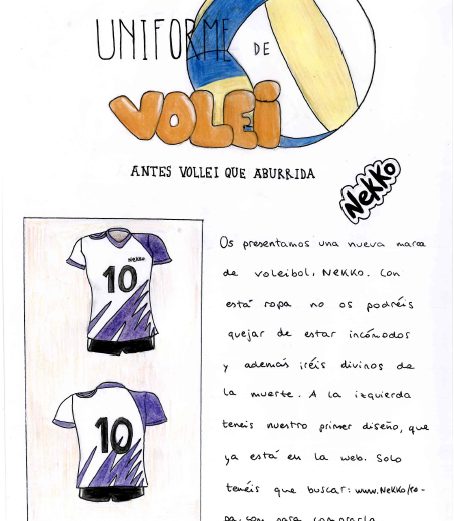 UNIFORME DE
VOLEI
ANTES VOLLEI QUE ABURRIDA
NEKKO
Os presentamos una nueva marca
de voleibol, NEKKO. Con
está ropa no os podréis
quejar de estar incómodos
y además iréis divinos de
la muerte. A la izquierda
teneis nuestro primer diseño, que
ya está en la web. Solo
tenéis que buscar: www.NEKKO/ro-
pa.com para comprarla
NEKKO
10
10